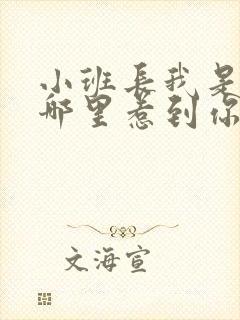 小班長我是
哪里惹到你
文海宣